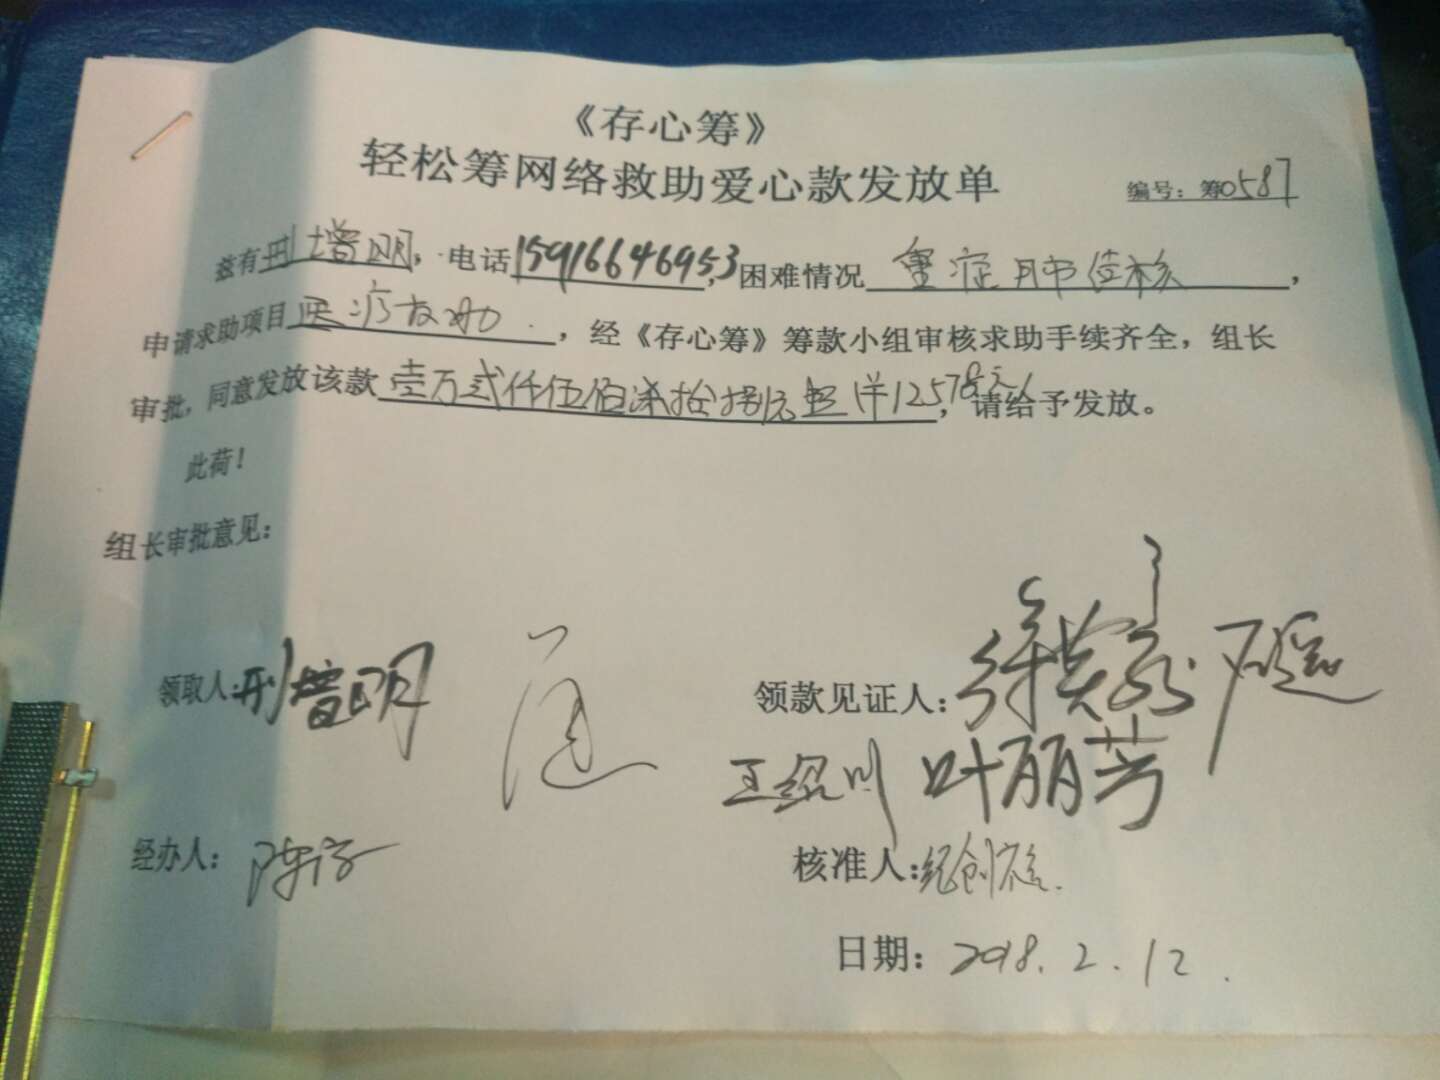 《存心筹》
轻松筹网络救助爱心款发放单
编号：筹0587
兹有刑增明，电话15916646953，困难情况重症肺结核，
申请求助项目医疗救助，经《存心筹》筹款小组审核求助手续齐全，组长
审批，同意发放该款壹万贰仟伍佰柒拾捌元整 12578元，请给予发放。
此荷！
组长审批意见：
领取人：刑增明
领款见证人：
叶丽芳
经办人：
核准人：
日期：2018.2.12.